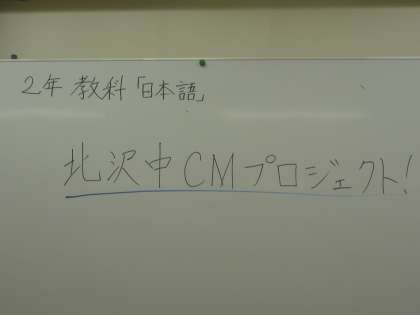 2年 教科「日本語」
北沢中CMプロジェクト!